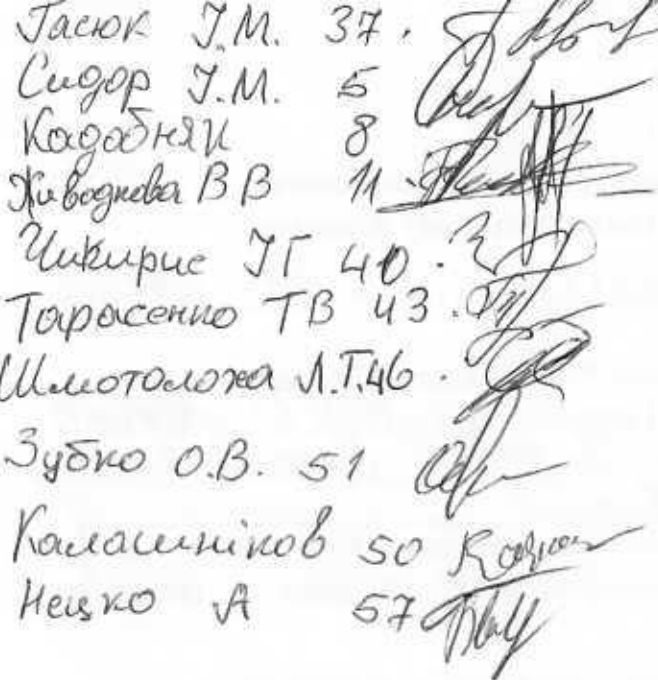 Гасюк І.М. 37.
Сидор І.М. 5
Кадобняк 8
Живоднова В В 11.
Чикирис ІГ 40.
Тарасенко ТВ 43.
Шмотолоха Л.Т. 46.
Зубко О.В. 51
Калашніков 50
Нецко А 57